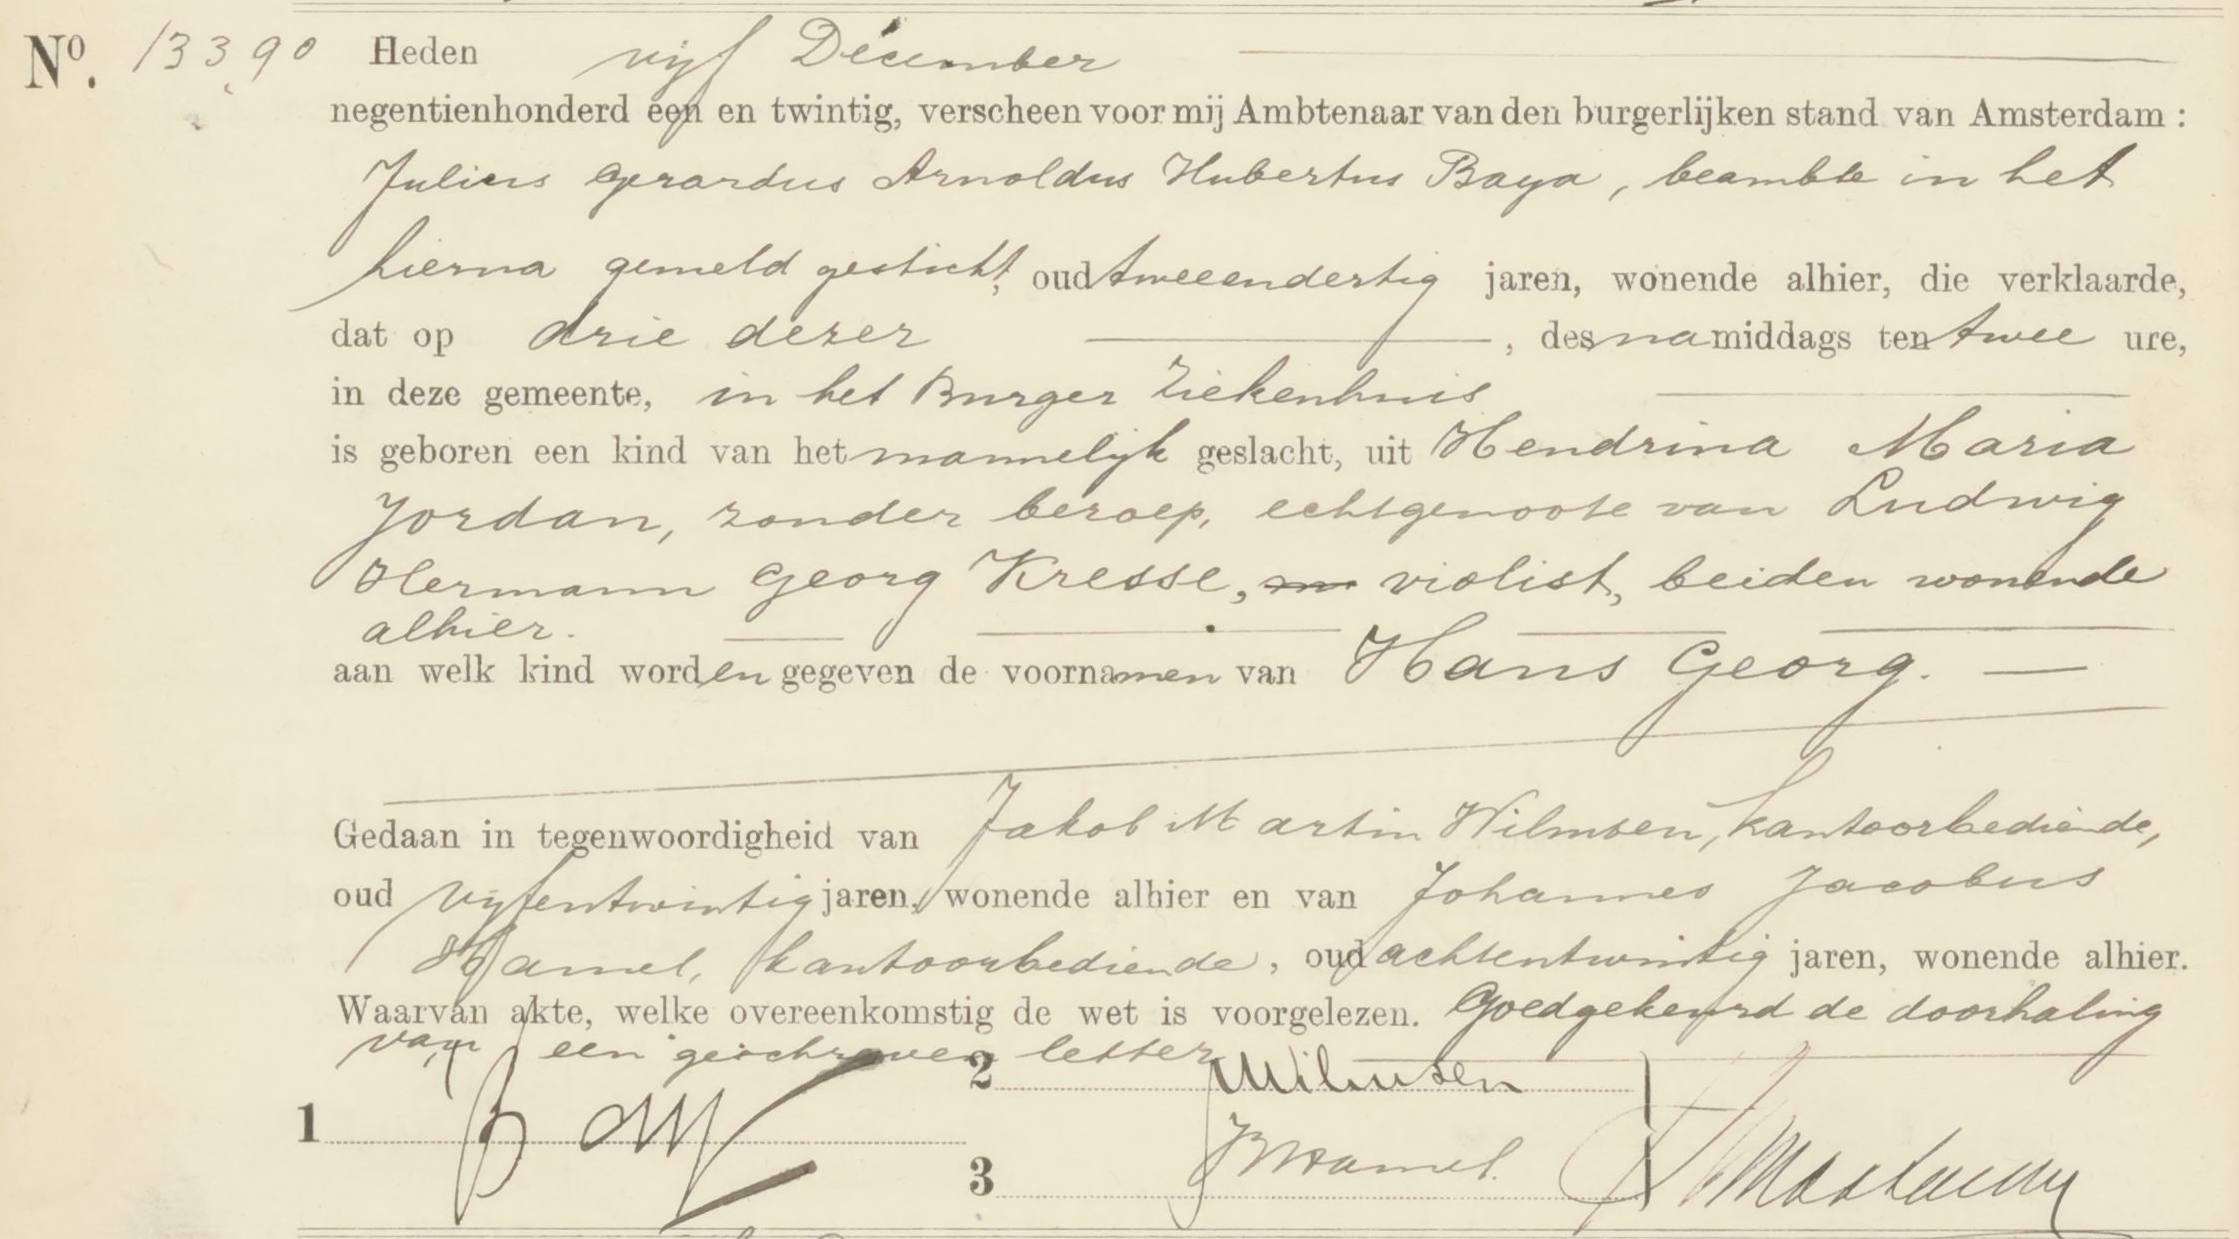 No. 13390 Heden vijf December
negentienhonderd een en twintig, verscheen voor mij Ambtenaar van den burgerlijken stand van Amsterdam :
Julius Gerardus Arnoldus Hubertus Baya, beambte in het
hierna gemeld gesticht, oud tweeendertig jaren, wonende alhier, die verklaarde,
dat op drie dezer , des namiddags ten twee ure,
in deze gemeente, in het Burger Ziekenhuis
is geboren een kind van het mannelijk geslacht, uit Hendrina Maria
Jordan, zonder beroep, echtgenoote van Ludwig
Hermann Georg Kresse, violist, beiden wonende
alhier.
aan welk kind worden gegeven de voornamen van Hans Georg.
Gedaan in tegenwoordigheid van Jakob Martin Wilmsen, kantoorbediende,
oud vijfentwintig jaren, wonende alhier en van Johannes Jacobus
Hamel, kantoorbediende, oud achtentwintig jaren, wonende alhier.
Waarvan akte, welke overeenkomstig de wet is voorgelezen. Goedgekeurd de doorhaling
van een geschreven letter
2 Wilmsen
1
3 Hamel.